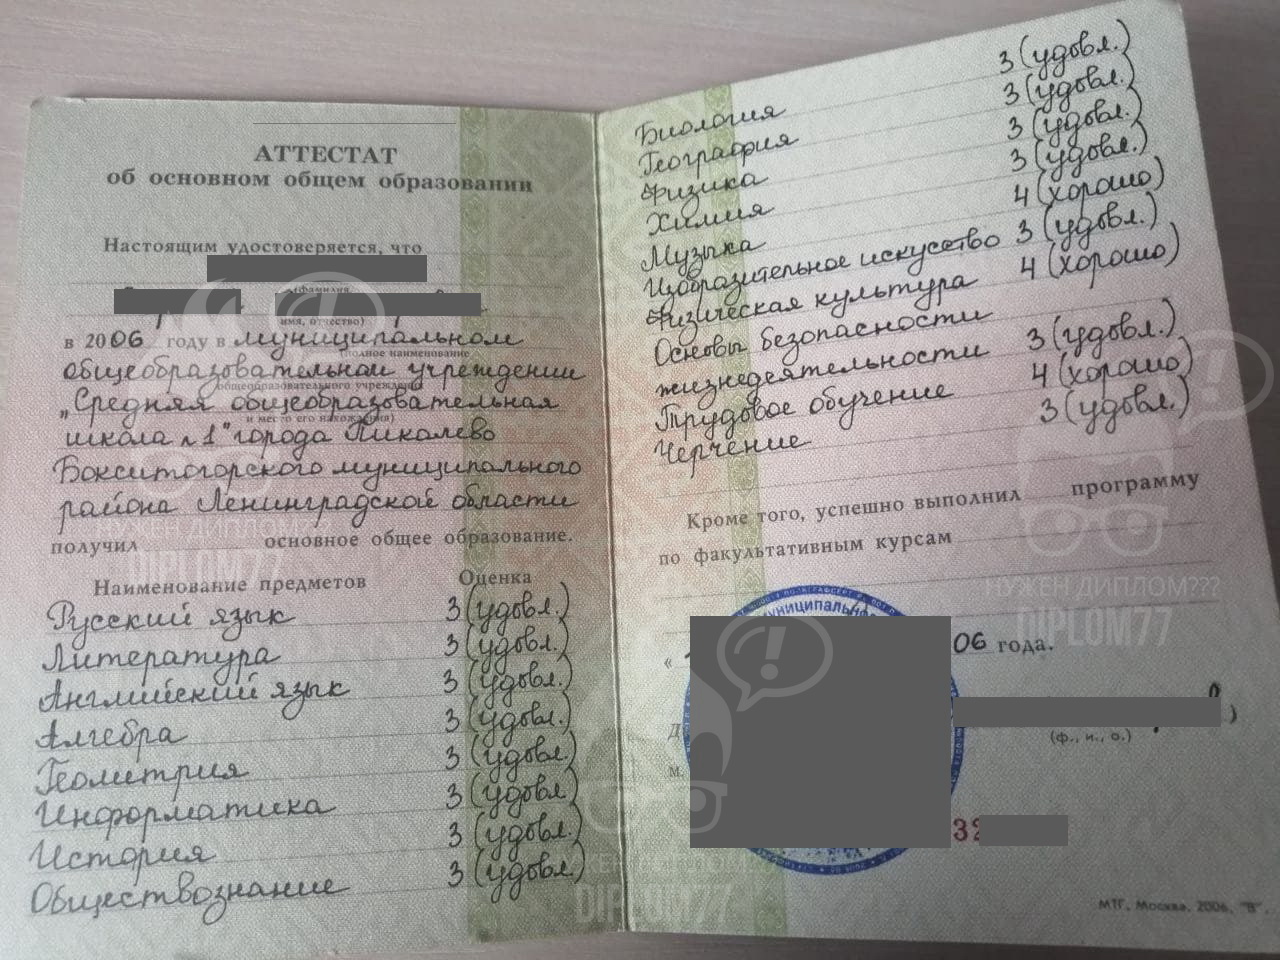 АТТЕСТАТ
об основном общем образовании
Настоящим удостоверяется, что
(фамилия,
имя, отчество)
в 2006 году в муниципальном
(полное наименование
общеобразовательном учреждении
общеобразовательного учреждения
„Средняя общеобразовательная
и место его нахождения)
школа №1" города Пикалево
Бокситогорского муниципального
района Ленинградской области
получил основное общее образование.
Наименование предметов Оценка
Русский язык 3 (удовл.)
Литература 3 (удовл.)
Английский язык 3 (удовл.)
Алгебра 3 (удовл.)
Геометрия 3 (удовл.)
Информатика 3 (удовл)
История 3 (удовл.)
Обществознание 3 (удовл.)
Биология 3 (удовл.)
География 3 (удовл.)
Физика 3 (удовл.)
Химия 3 (удовл.)
Музыка 4 (хорошо)
Изобразительное искусство 3 (удовл.)
Физическая культура 4 (хорошо)
Основы безопасности
жизнедеятельности 3 (удовл.)
Трудовое обучение 4 (хорошо)
Черчение 3 (удовл.)
Кроме того, успешно выполнил программу
по факультативным курсам
муниципально
« 06 года.
Д )
(ф., и., о.)
м.
32
МТГ, Москва, 2006, "В".
НУЖЕН ДИПЛОМ???
DIPLOM77
НУЖЕН ДИПЛОМ???
DIPLOM77
DIPLOM77